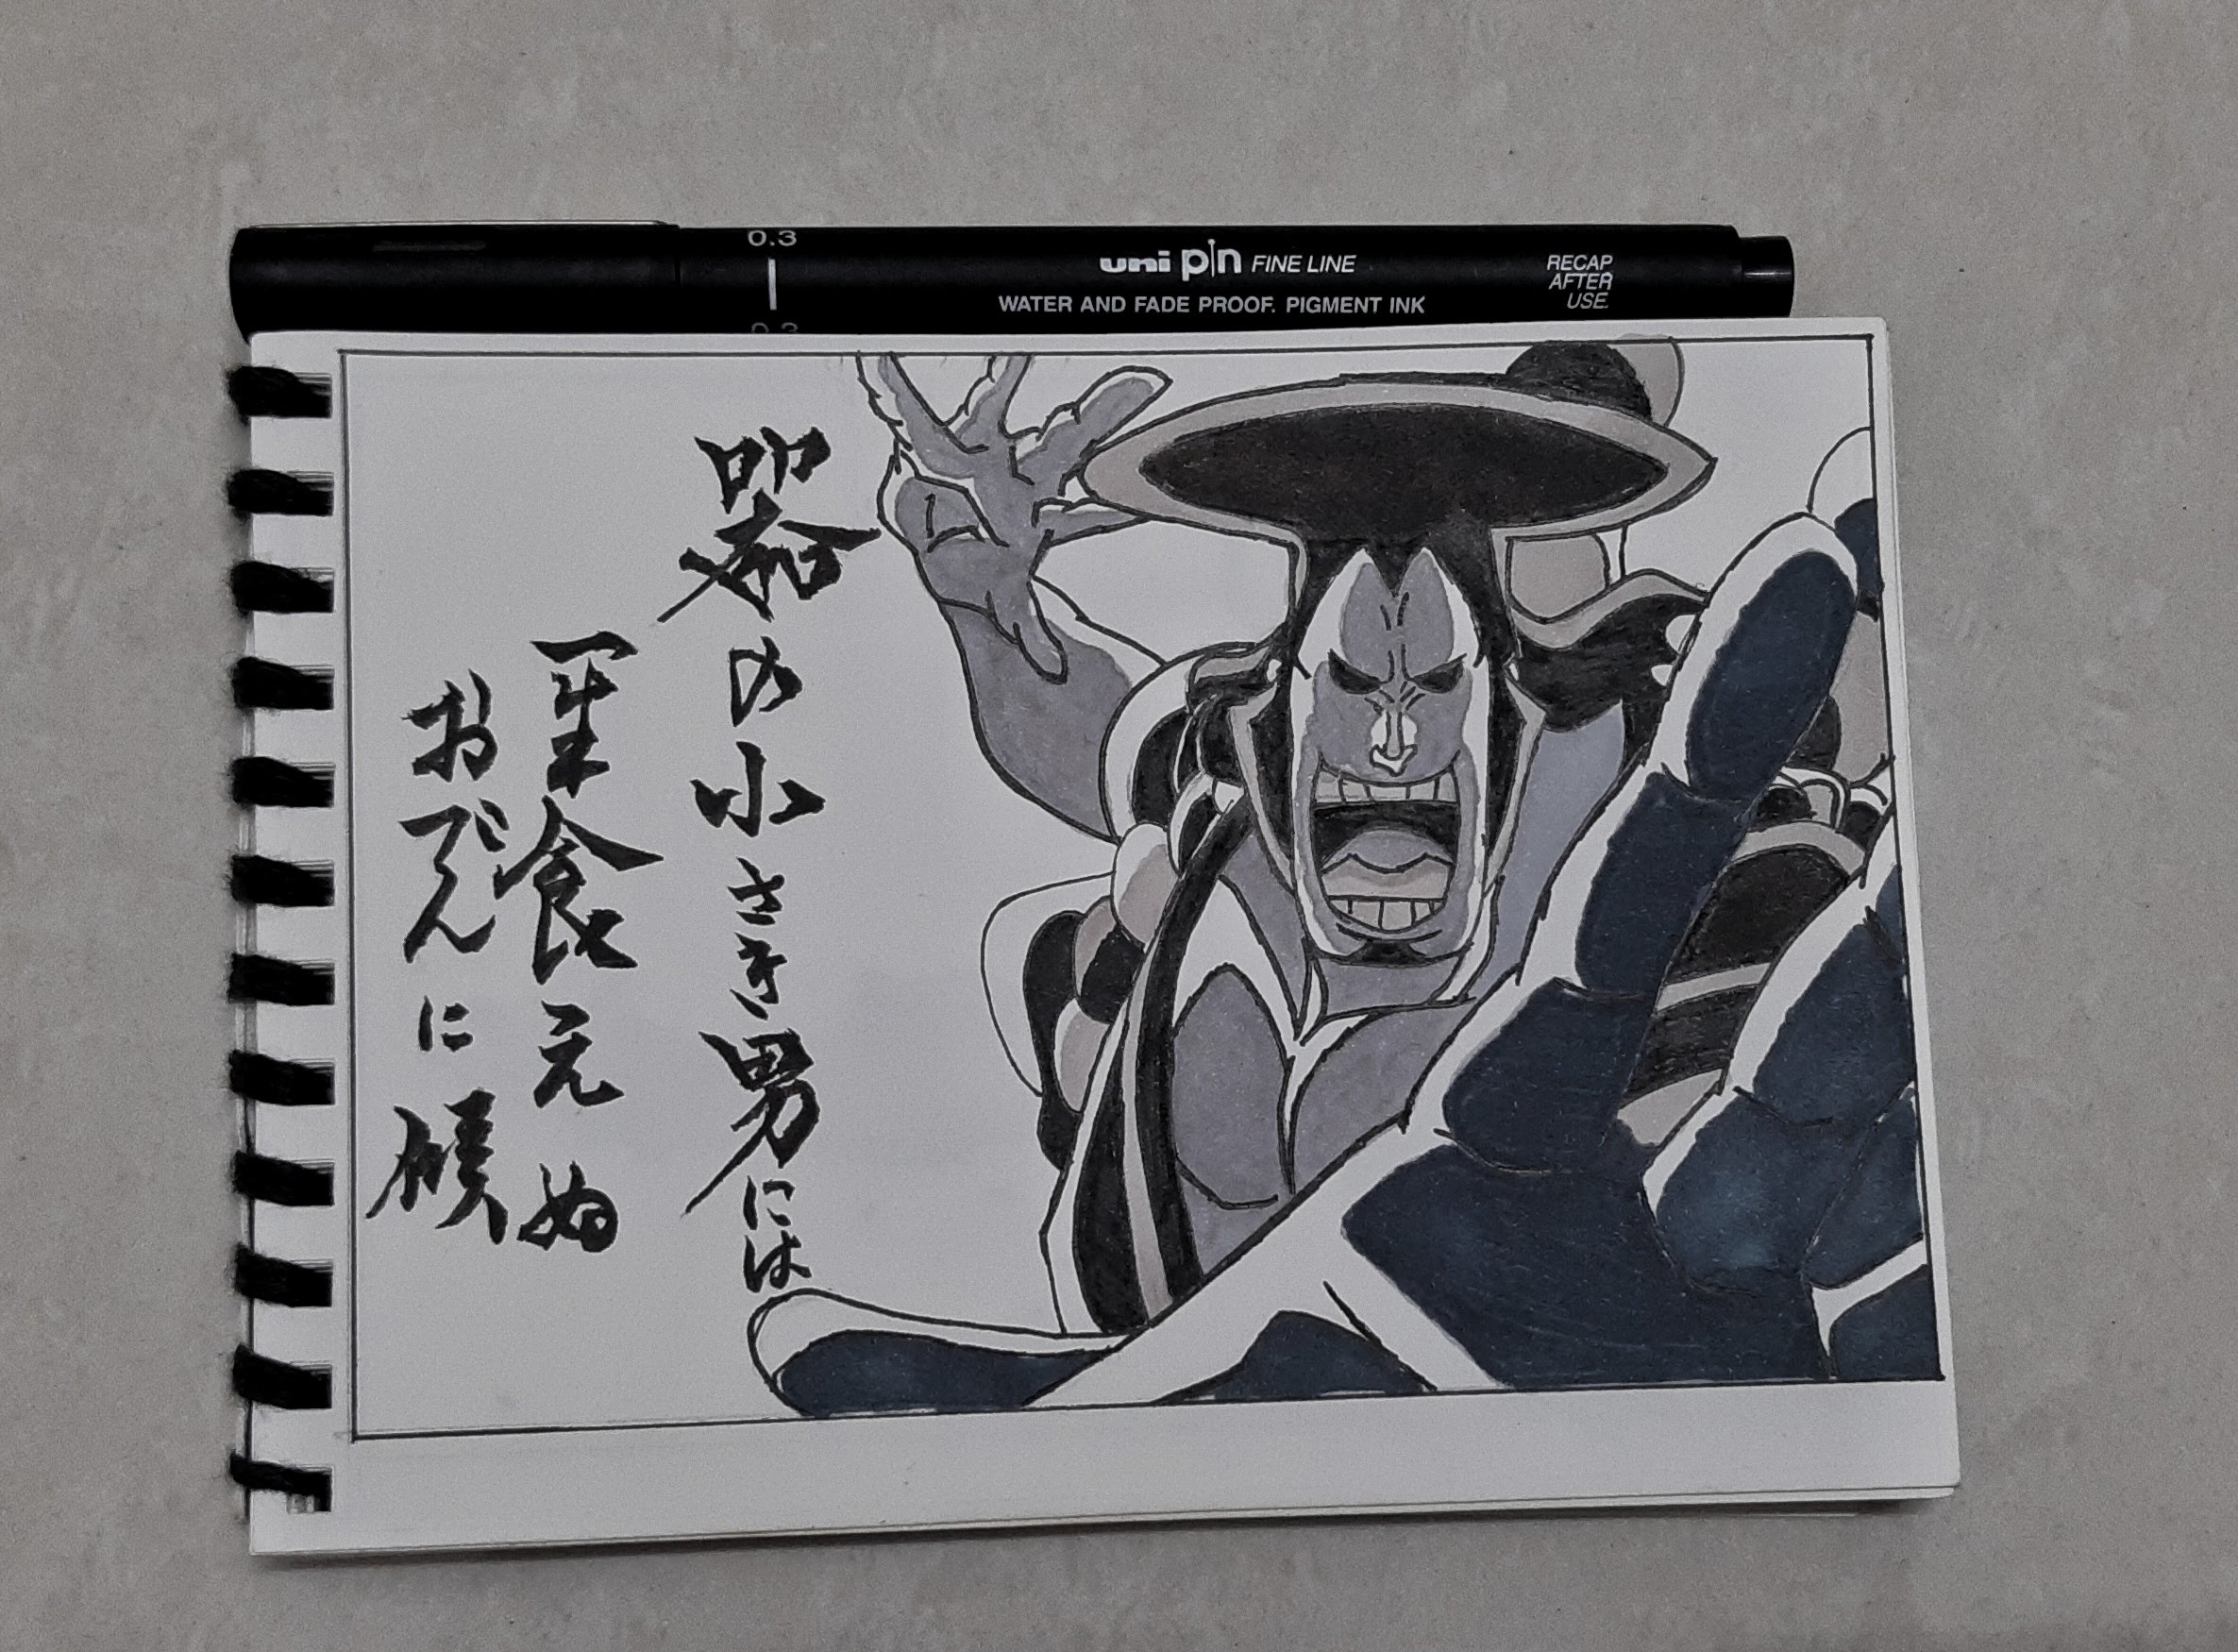 0.3
uni pin FINE LINE
WATER AND FADE PROOF. PIGMENT INK
RECAP
AFTER
USE.
0.3
器の小さき男には
一生食えぬ
おでんに候